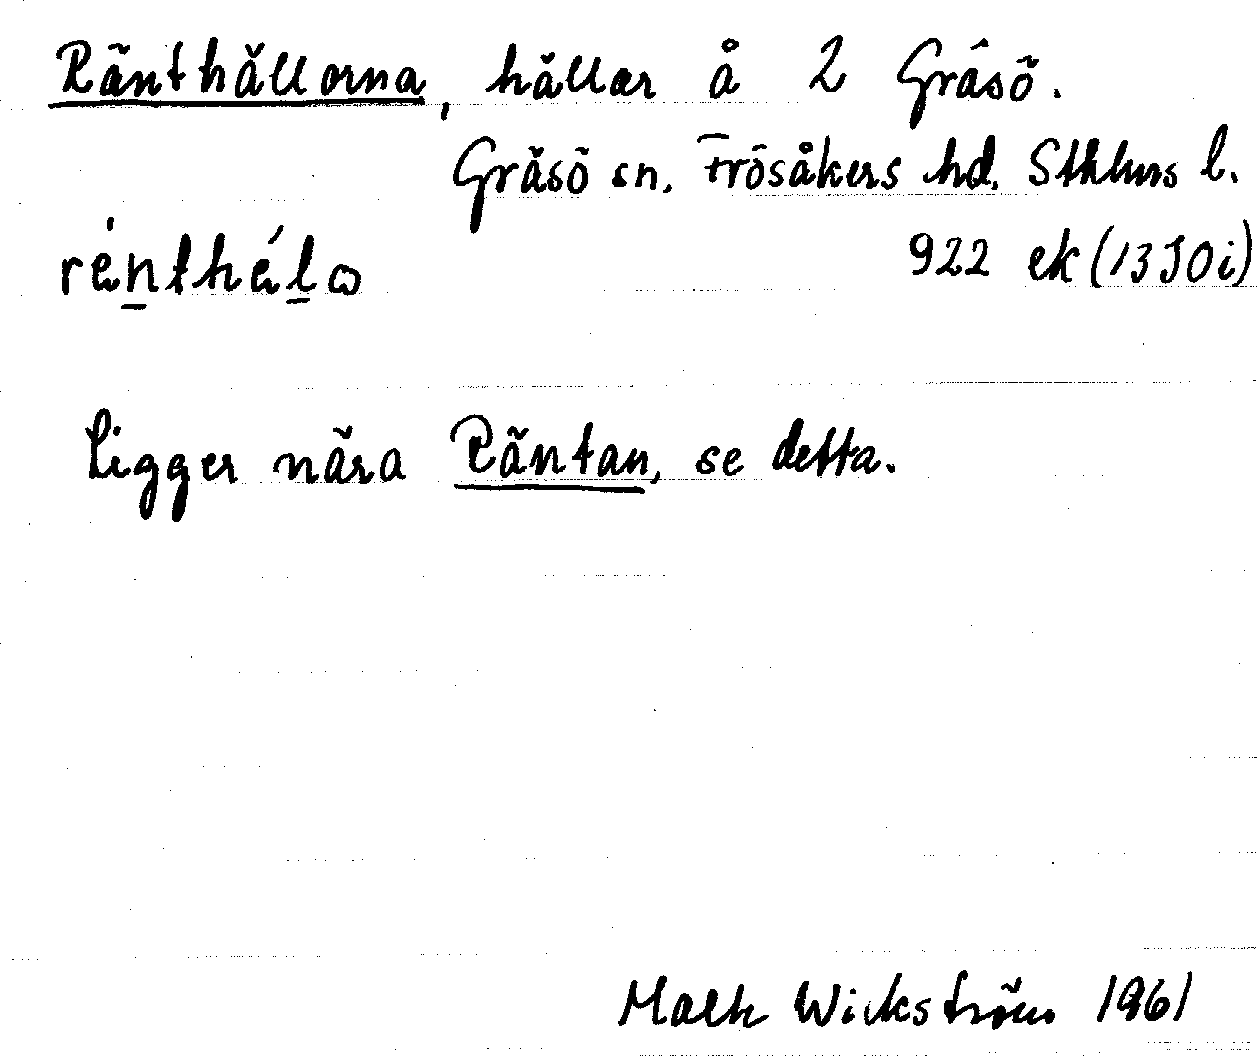 Ränthällorna, hällar å 2 Gräsö.
Gräsö sn. Frösåkers hd. Sthlms l.
rènthé̱la
922 ek (13 I 0 i)
Ligger nära Räntan, se detta.
Wickström 1961